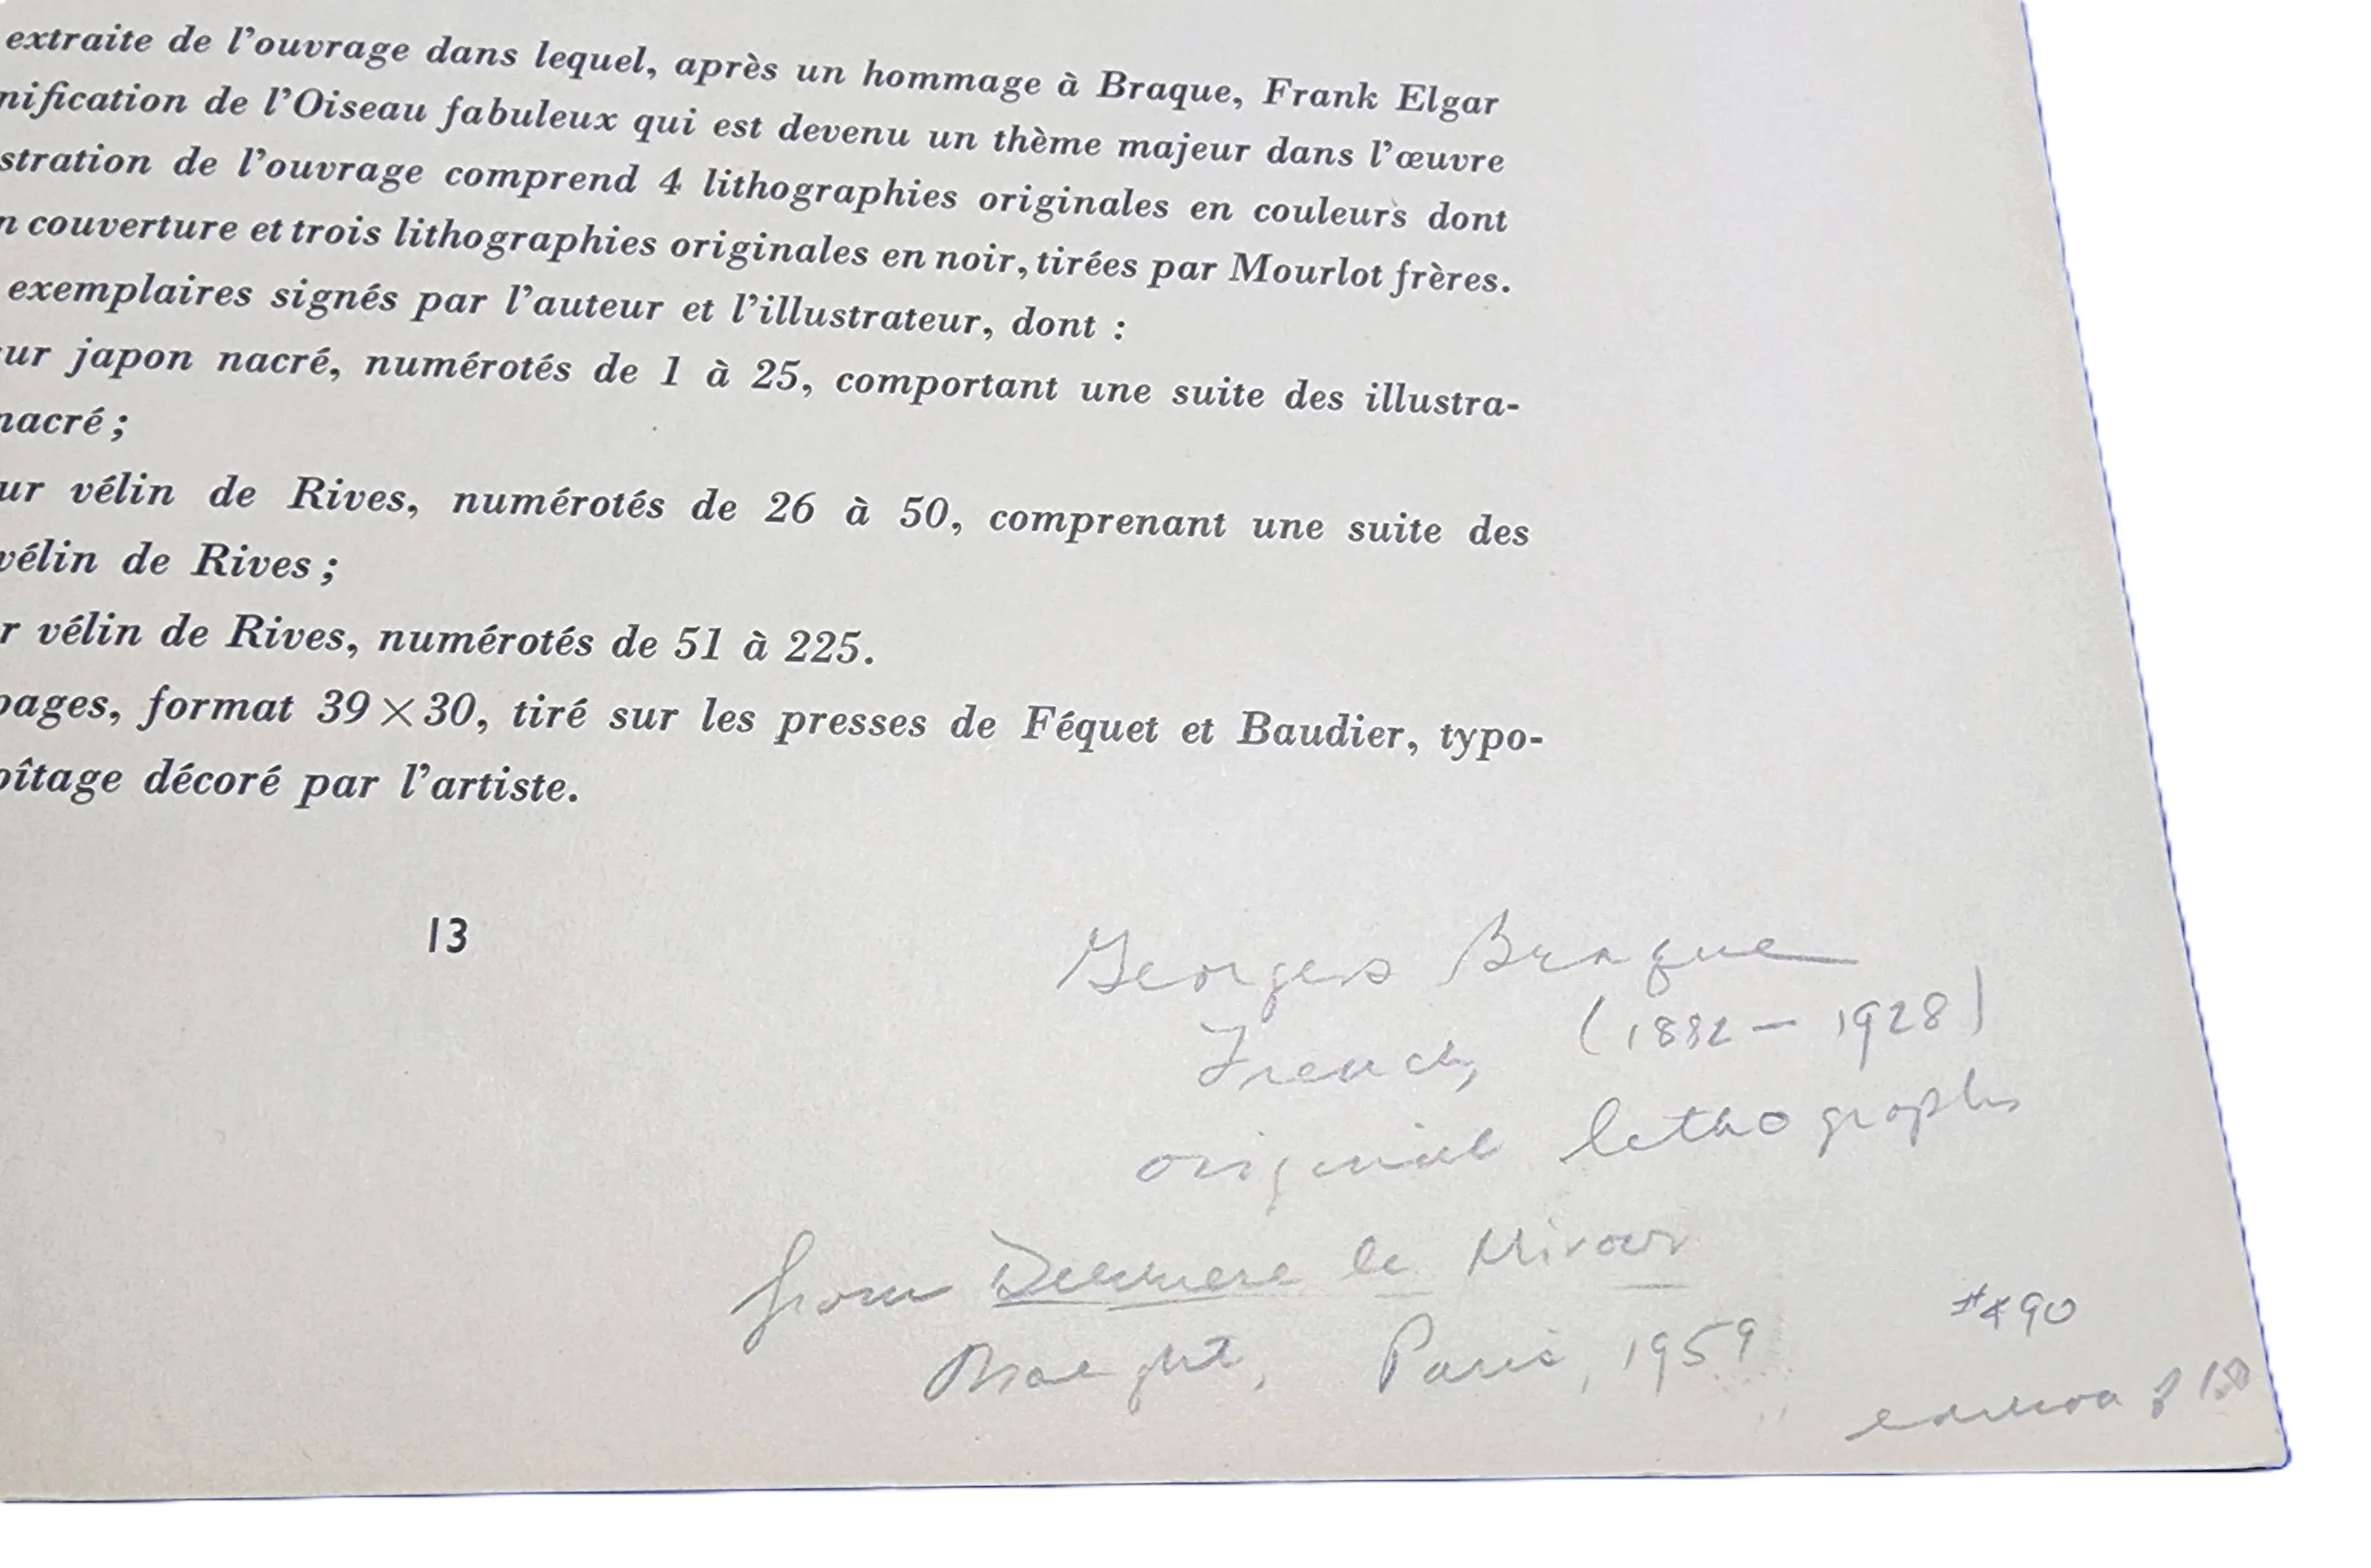 extraite de l'ouvrage dans lequel, après un hommage à Braque, Frank Elgar
nification de l'Oiseau fabuleux qui est devenu un thème majeur dans l'œuvre
stration de l'ouvrage comprend 4 lithographies originales en couleurs dont
n couverture et trois lithographies originales en noir, tirées par Mourlot frères.
exemplaires signés par l'auteur et l'illustrateur, dont :
ur japon nacré, numérotés de 1 à 25, comportant une suite des illustra-
nacré ;
ur vélin de Rives, numérotés de 26 à 50, comprenant une suite des
vélin de Rives ;
r vélin de Rives, numérotés de 51 à 225.
pages, format 39 × 30, tiré sur les presses de Féquet et Baudier, typo-
oîtage décoré par l'artiste.
13
Georges Braque
French, (1882 – 1928)
original lithographs
from le Miroir
Maeght, Paris, 1959
90
edition of